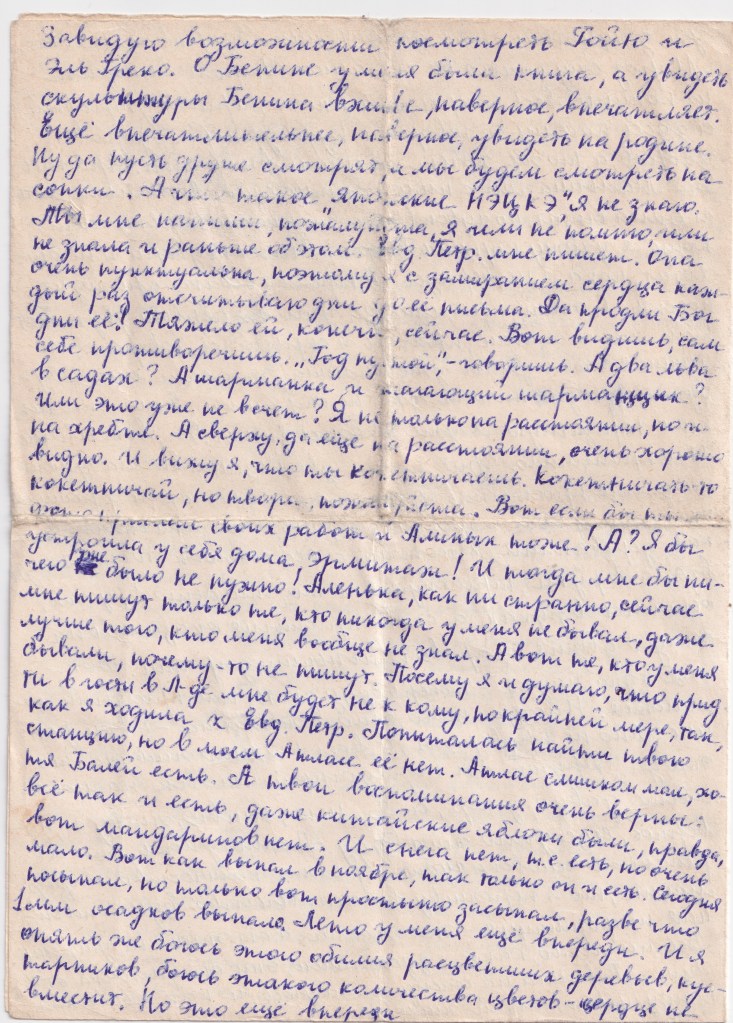 Завидую возможности посмотреть Гойю и
Эль Греко. О Бенине у меня была книга, а увидеть
скульптуры Бенина вживе, наверное, впечатляет.
Ещё впечатлительнее, наверное, увидеть на родине.
Ну да пусть другие смотрят, а мы будем смотреть на
сопки. А что такое японские "НЭЦКЭ", я не знаю.
Ты мне напиши, пожалуйста, я чи не помню, чи
не знала и раньше об этом. Евд. Петр. мне пишет. Она
очень пунктуальна, поэтому я с замиранием сердца каж-
дый раз отсчитываю дни до её письма. Да продли Бог
дни её! Тяжело ей, конечно, сейчас. Вот видишь, сам
себе противоречишь. „Год пустой", - говоришь. А два льва
в садах? А шарманка и шагающий шарманщик?
Или это уже не в счет? Я не только на расстоянии, но и
на хребте. А сверху, да ещё на расстоянии, очень хорошо
видно. И вижу я, что ты кокетничаешь. Кокетничать-то
кокетничай, но твори, пожалуйста. Вот если бы ты мне
своих работ и Алиных тоже! А? Я бы
устроила у себя дома, Эрмитаж! И тогда мне бы ни-
чего уже было не нужно! Аленька, как ни странно, сейчас
мне пишут только те, кто никогда у меня не бывал, даже
лучше того, кто меня вообще не знал. А вот те, кто у меня
бывали, почему-то не пишут. Посему я и думаю, что прид-
ти в гости в Л-де мне будет не к кому, по крайней мере, так,
как я ходила к Евд. Петр. Попыталась найти твою
станцию, но в моем Атласе её нет. Атлас слишком мал, хо-
тя Балей есть. А твои воспоминания очень верны:
всё так и есть, даже китайские яблоки были, правда,
вот мандаринов нет. И снега нет, т.е. есть, но очень
мало. Вот как выпал в ноябре, так только он и есть. Сегодня
посыпал, но только вот простыню засыпал, разве что
1 мм осадков выпало. Лето у меня ещё впереди. И я
опять же боюсь этого обилия расцветших деревьев, кус-
тарников, боюсь этакого количества цветов - сердце не
вместит. Но это ещё впереди